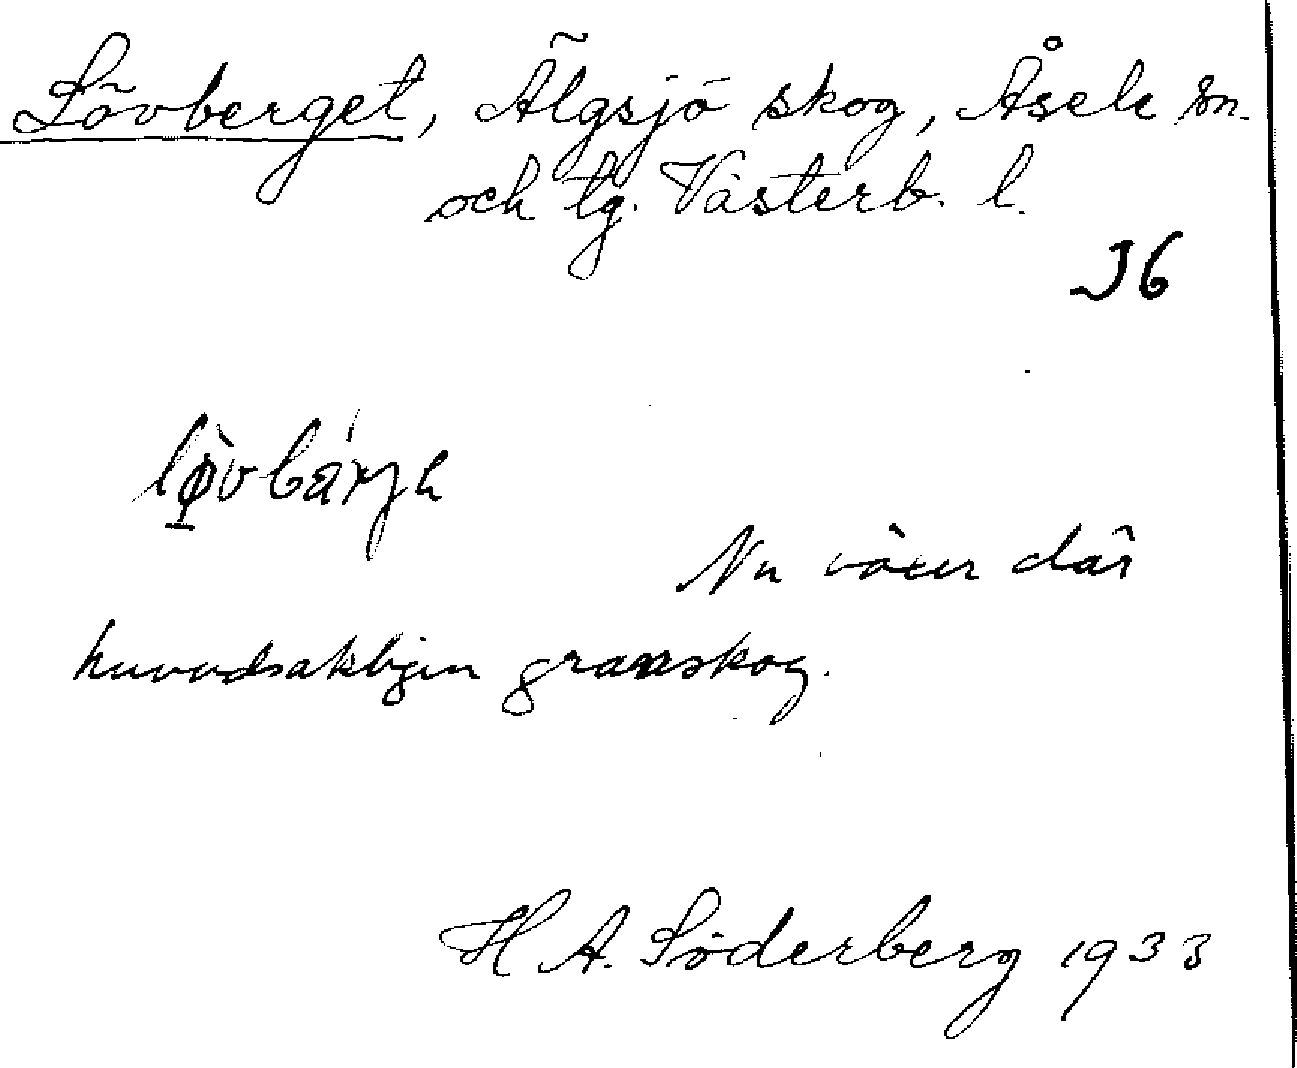 Lövberget, Älgsjö skog, Åsele sn.
och tg. Västerb. l.
J6
Nu växer där
huvudsakligen granskog.
H A. Söderberg 1933